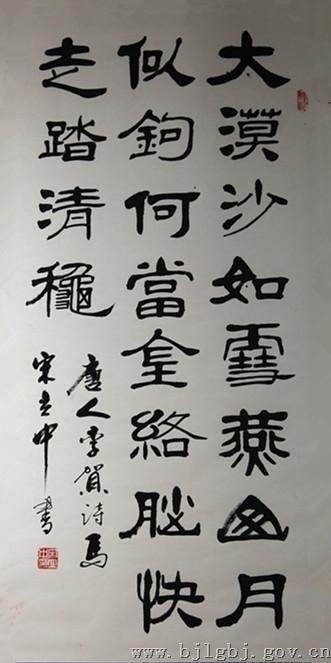 大漠沙如雪燕山月
似鉤何當金絡腦快
走踏清龝
唐人李賀詩馬
宋立中書
www.bjlgbj.gov.cn